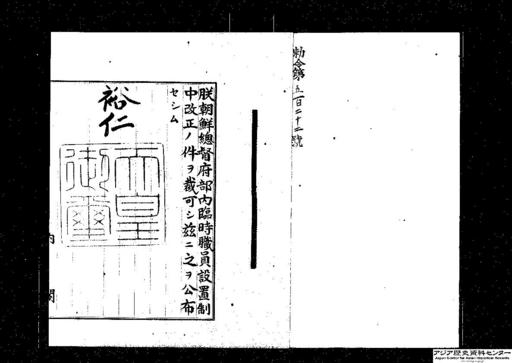 勅令第五百二十二號
朕朝鮮總督府部內臨時職員設置制
中改正ノ件ヲ裁可シ茲ニ之ヲ公布
セシム
裕仁
天皇
御璽
內
閣
アジア歴史資料センター
Japan Center for Asian Historical Records